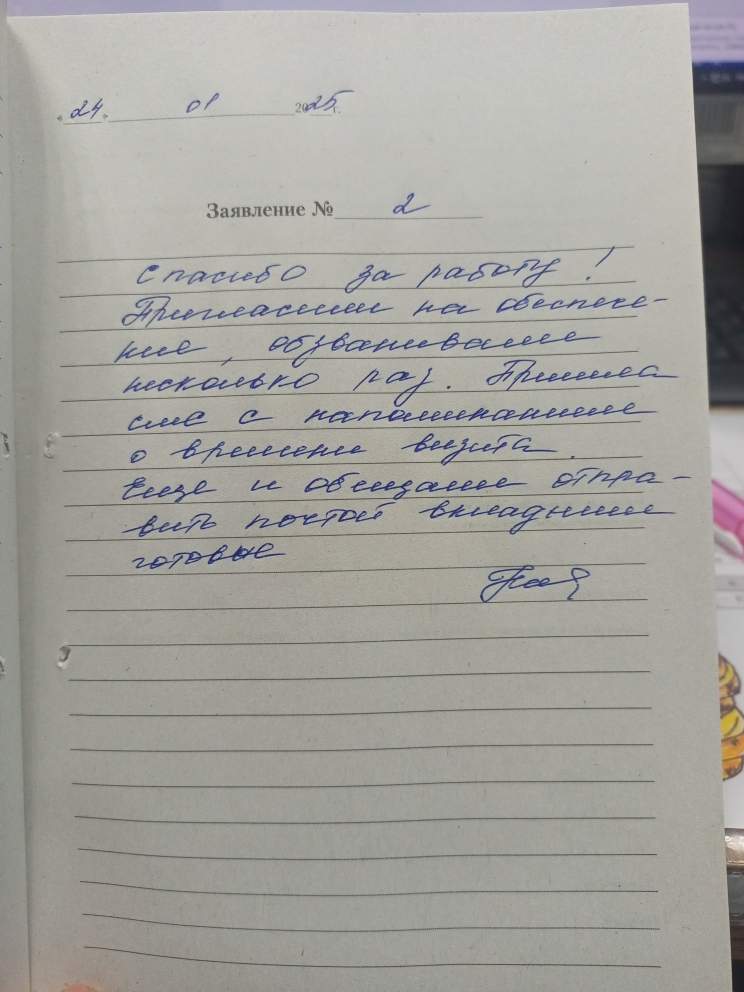 «24» 01 2025г.
Заявление № 2
Спасибо за работу!
Пригласили на обеспече-
ние, обзванивали
несколько раз. Пришла
смс с напоминанием
о времени визита.
Еще и обещали отпра-
вить почтой вкладыши
готовые